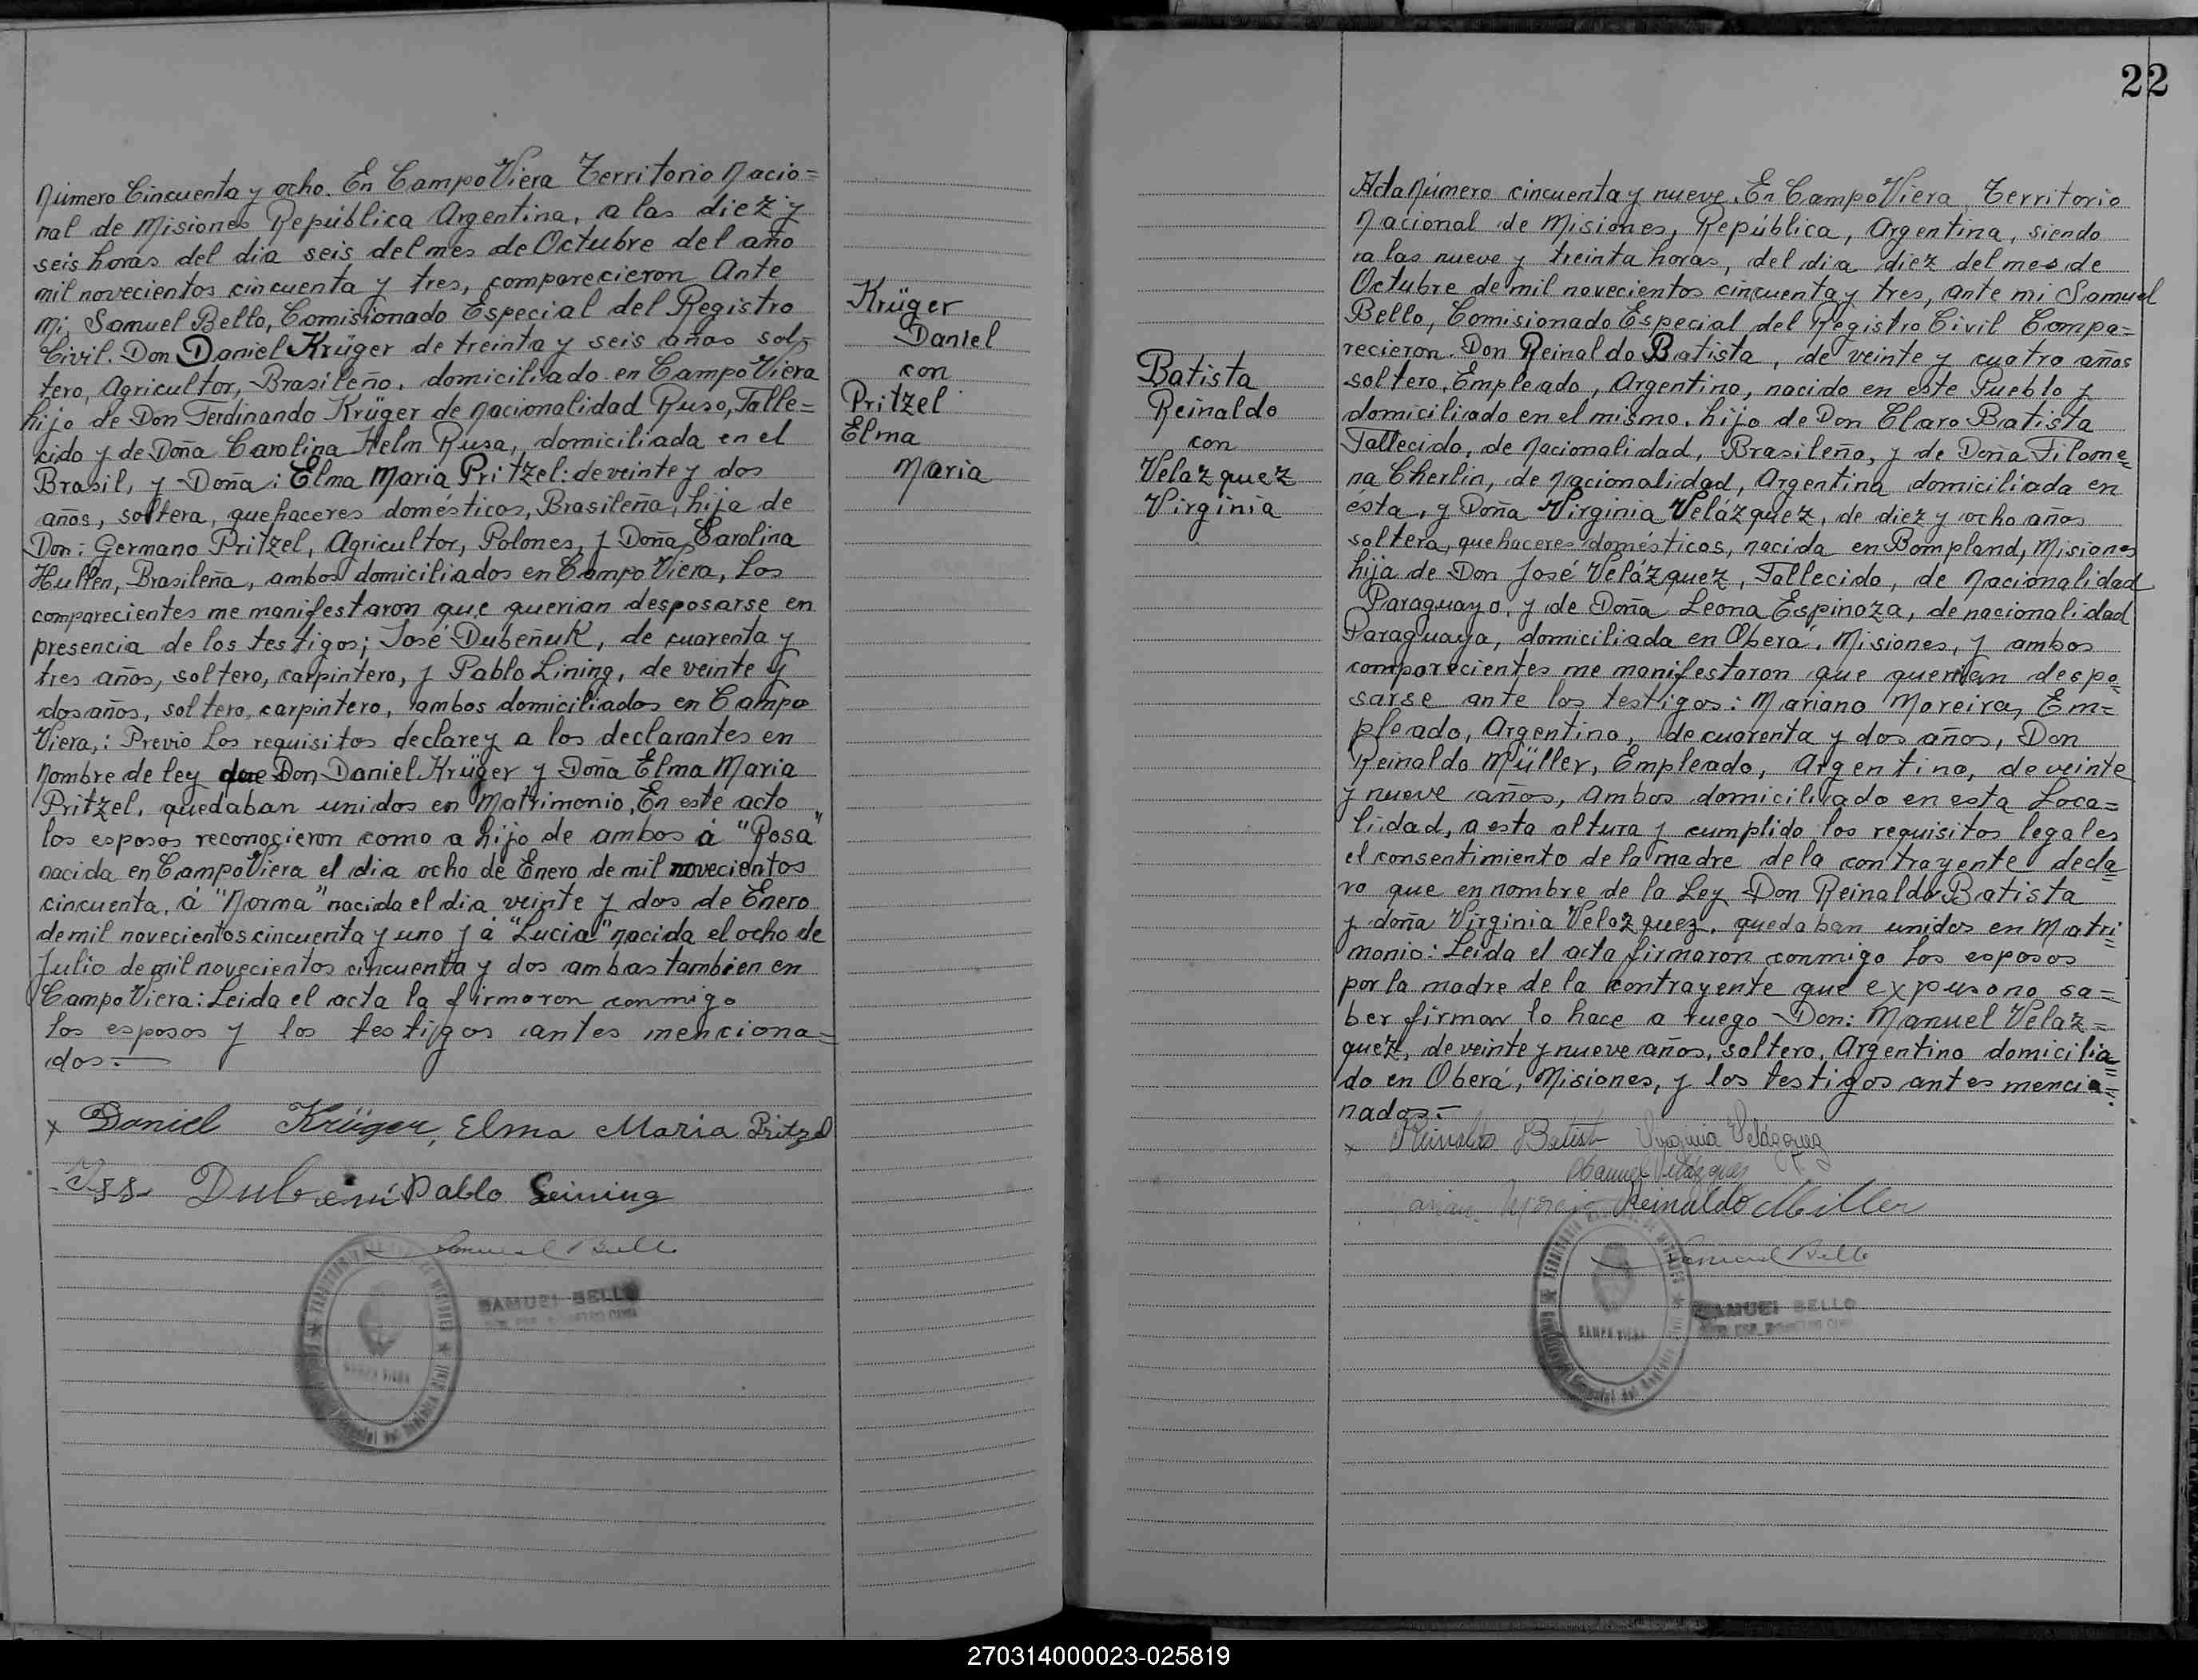 Número Cincuenta y ocho. En Campo Viera Territorio Nacio=
nal de Misiones República Argentina, a las diez y
seis horas del dia seis del mes de Octubre del año
mil novecientos cincuenta y tres, comparecieron Ante
Mi, Samuel Bello, Comisionado Especial del Registro
Civil. Don Daniel Krüger de treinta y seis años sol=
tero, Agricultor, Brasileño, domiciliado en Campo Viera
hijo de Don Ferdinando Krüger de Nacionalidad Ruso, Falle=
cido y de Doña Carolina Helm Rusa, domiciliada en el
Brasil, y Doña: Elma Maria Pritzel: de veinte y dos
años, soltera, quehaceres domésticos, Brasileña, hija de
Don: Germano Pritzel, Agricultor, Polones, y Doña Carolina
Hullen, Brasileña, ambos domiciliados en Campo Viera, Los
comparecientes me manifestaron que querian desposarse en
presencia de los testigos; José Dubeñuk, de cuarenta y
tres años, soltero, carpintero, y Pablo Lining, de veinte y
dos años, soltero, carpintero, ambos domiciliados en Campo
Viera,: Previo Los requisitos declare y a los declarantes en
Nombre de ley que Don Daniel Krüger y Doña Elma Maria
Pritzel, quedaban unidos en Matrimonio, En este acto
los esposos reconocieron como a hijo de ambos á "Rosa"
nacida en Campo Viera el dia ocho de Enero de mil novecientos
cincuenta, á "Norma" nacida el dia veinte y dos de Enero
de mil novecientos cincuenta y uno y á "Lucia" nacida el ocho de
Julio de mil novecientos cincuenta y dos ambas tambien en
Campo Viera: Leida el acta la firmaron conmigo
los esposos y los testigos antes menciona=
dos.—
x Daniel Krüger, Elma Maria Pritzel
Pablo Leining
Samuel Bello
SAMUEL BELLO
Krüger
Daniel
con
Pritzel
Elma
Maria
22
Batista
Reinaldo
con
Velazquez
Virginia
Acta Número cincuenta y nueve. En Campo Viera Territorio
Nacional de Misiones, República, Argentina, siendo
a las nueve y treinta horas, del dia diez del mes de
Octubre de mil novecientos cincuenta y tres, ante mi Samuel
Bello, Comisionado Especial del Registro Civil Compa=
recieron. Don Reinaldo Batista, de veinte y cuatro años
soltero, Empleado, Argentino, nacido en este Pueblo y
domiciliado en el mismo, hijo de Don Claro Batista
Fallecido, de Nacionalidad, Brasileño, y de Doña Filome=
na Cherlin, de Nacionalidad, Argentina domiciliada en
ésta, y Doña Virginia Velázquez, de diez y ocho años
soltera, quehaceres domésticos, nacida en Bompland, Misiones
hija de Don José Velázquez, Fallecido, de Nacionalidad
Paraguayo, y de Doña Leona Espinoza, de nacionalidad
Paraguaya, domiciliada en Oberá, Misiones, y ambos
comparecientes me manifestaron que querian despo=
sarse ante los testigos: Mariano Moreira, Em=
pleado, Argentino, de cuarenta y dos años, Don
Reinaldo Müller, Empleado, Argentino, de veinte
y nueve años, Ambos domiciliado en esta Loca=
lidad, a esta altura y cumplido los requisitos legales
el consentimiento de la madre de la contrayente decla=
ro que en nombre de la Ley Don Reinaldo Batista
y doña Virginia Velazquez, quedaban unidos en Matri=
monio: Leida el acta firmaron conmigo los esposos
por la madre de la contrayente que expuso no sa=
ber firmar lo hace a ruego Don: Manuel Velaz=
quez, de veinte y nueve años, soltero, Argentino domicilia=
do en Oberá, Misiones, y los testigos antes mencio=
nados.—
x Reinaldo Batista Virginia Velázquez
Manuel Velázquez
Reinaldo Miller
Samuel Bello
CAMPO VIERA
SAMUEL BELLO
270314000023-025819